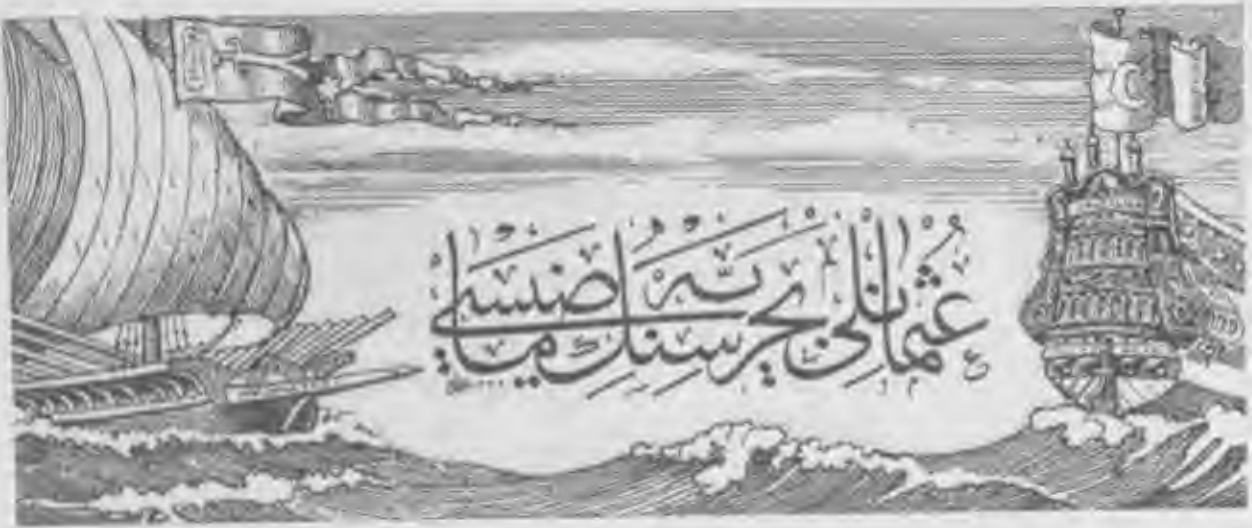 عثمانلى بحريه سنك ماضيسى